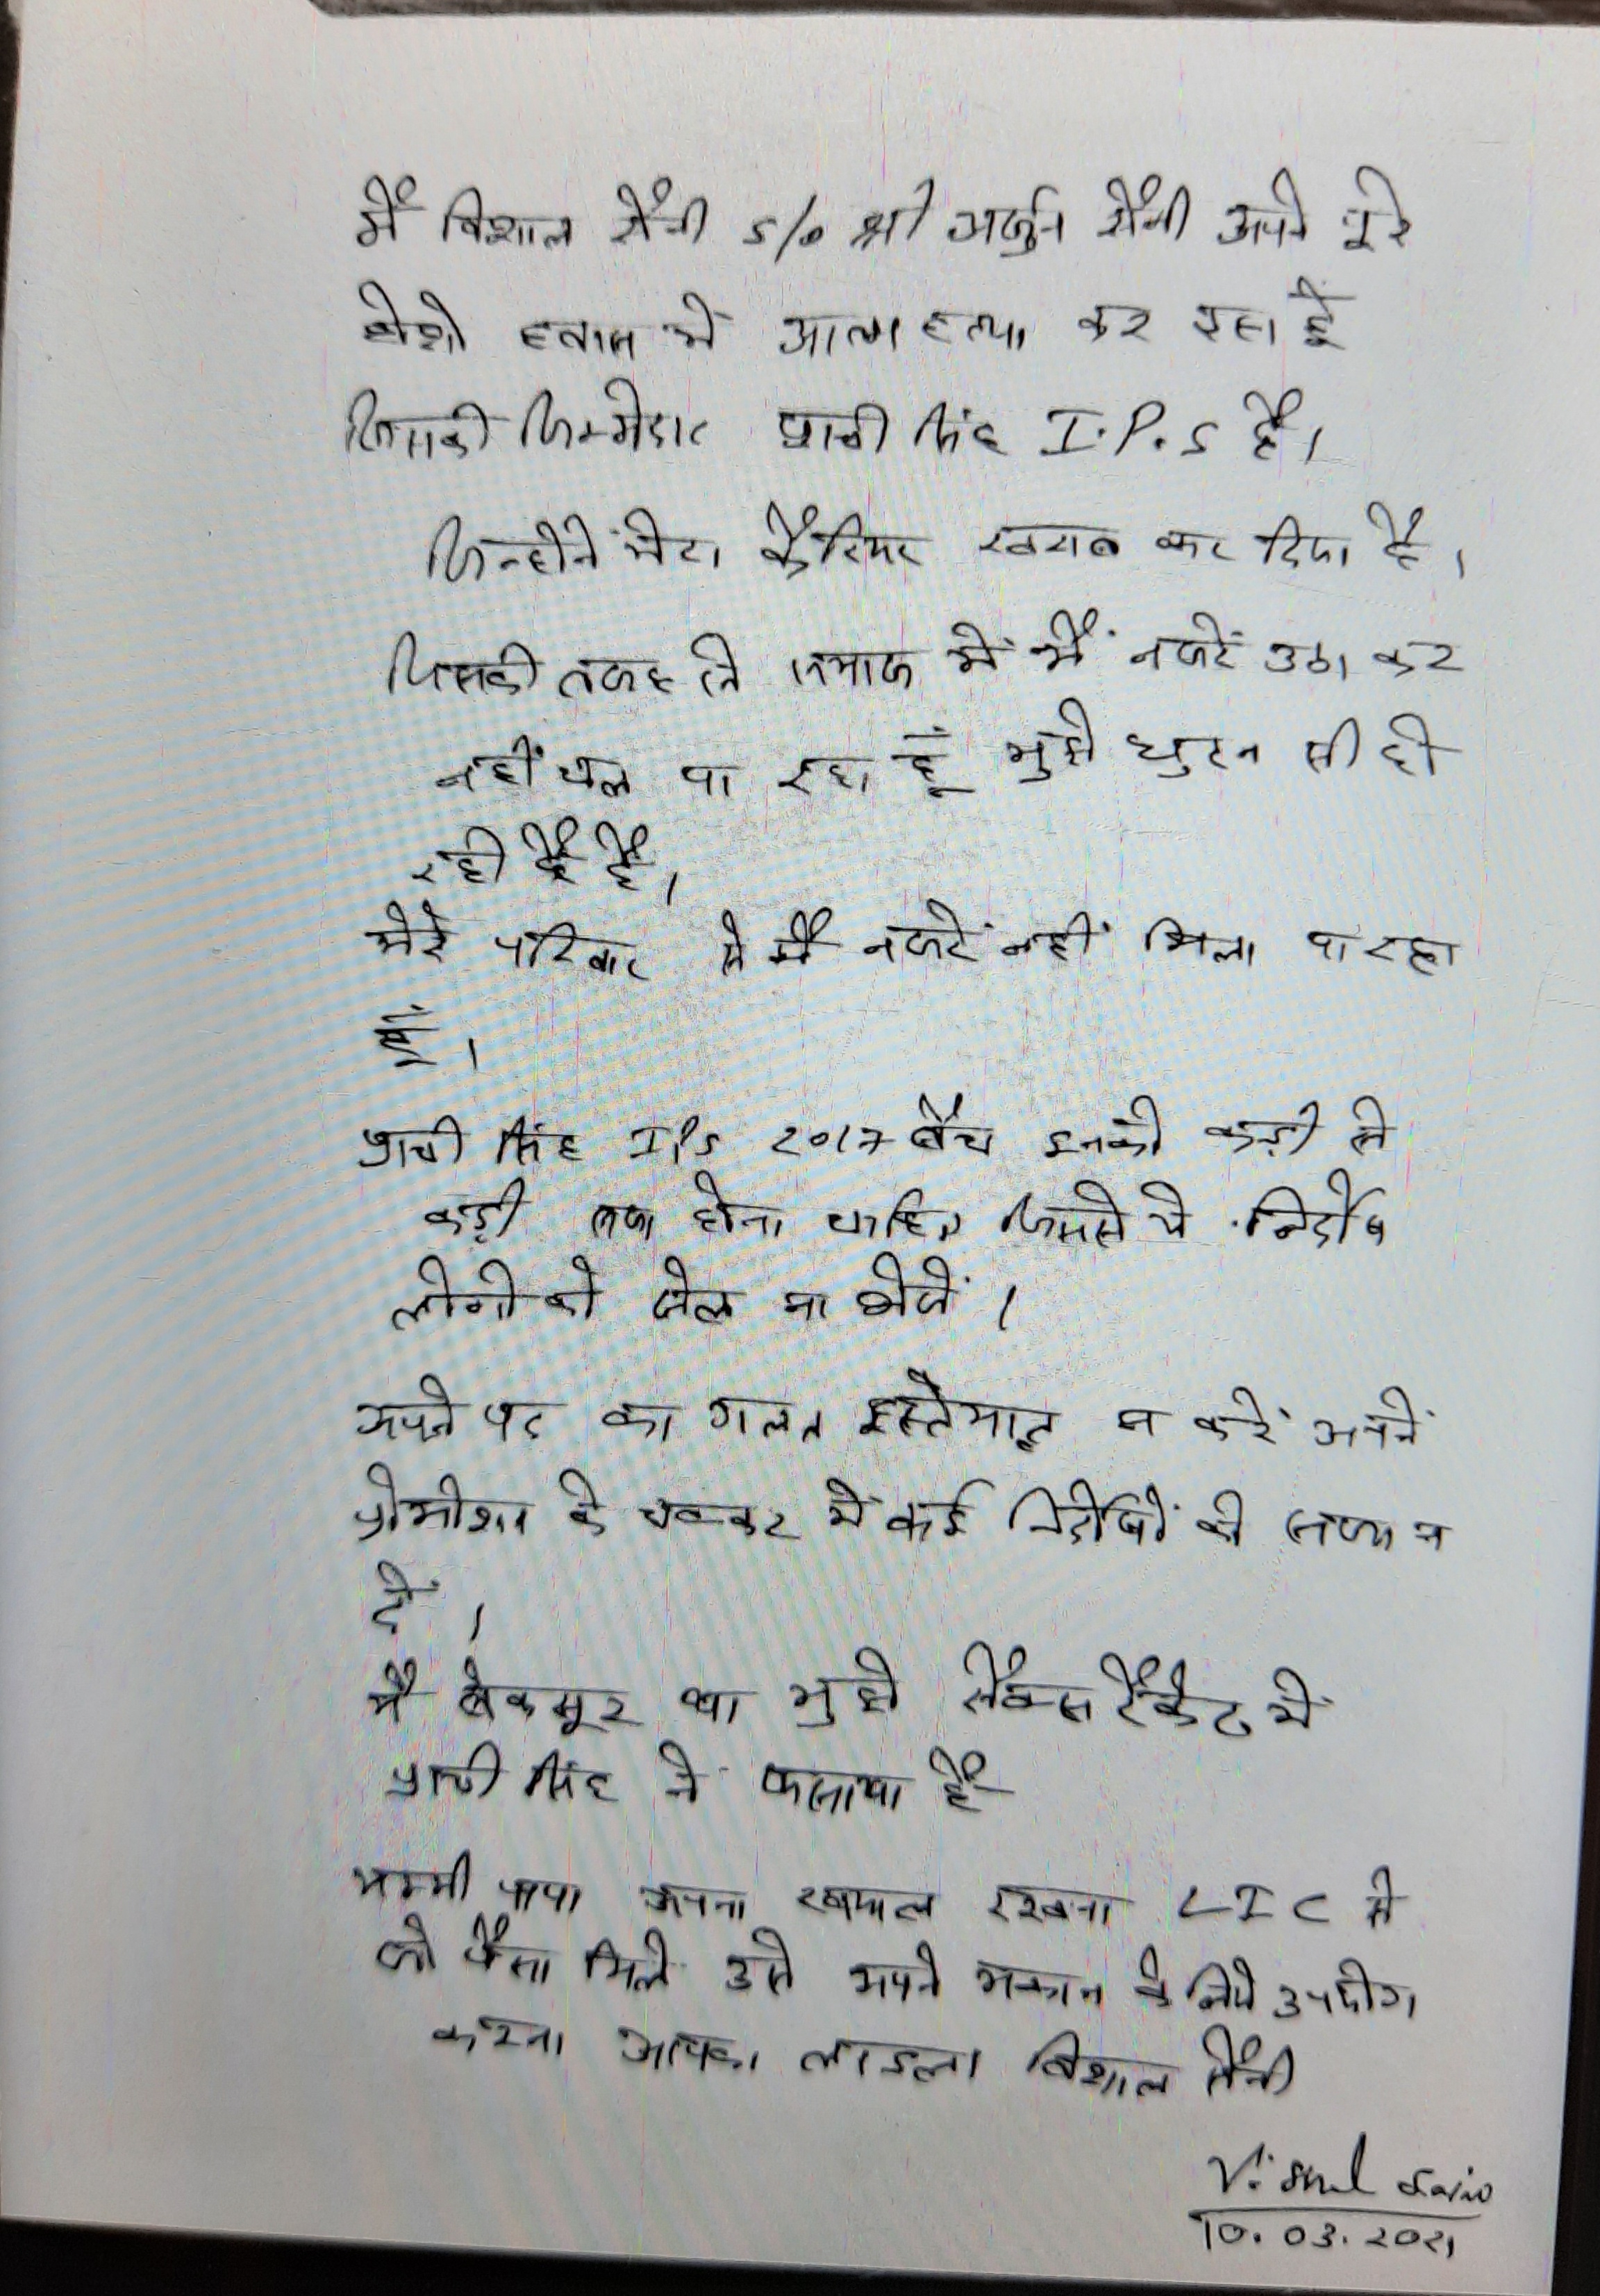 मैं विशाल सैनी S/o श्री अर्जुन सैनी अपने पूरे
होशो हवास में आत्महत्या कर रहा हूँ
जिसकी जिम्मेदार प्राची सिंह I.P.S है।
जिन्होने मेरा कैरियर खराब कर दिया है।
जिसकी वजह से समाज में मैं नजरें उठा कर
नहीं चल पा रहा हूं मुझे घुटन सी हो
रही है है।
मेरे परिवार से मैं नजरें नहीं मिला पा रहा
हूँ।
प्राची सिंह IPS 2017 बैच इनको कड़ी से
कड़ी सजा होना चाहिए जिससे ये निर्दोष
लोगो को जेल ना भेजें।
अपने पद का गलत इस्तेमाल न करें अपनें
प्रोमोशन के चक्कर में कई निर्दोषों को सजा न
दें।
मै बेकसूर था मुझे सैक्स रैकेट में
प्राची सिंह ने फसाया है
मम्मी पापा अपना ख्याल रखना LIC से
जो पैसा मिले उसे अपने मकान के लिये उपयोग
करना आपका लाडला विशाल सैनी
Vishal Saini
10.03.2021